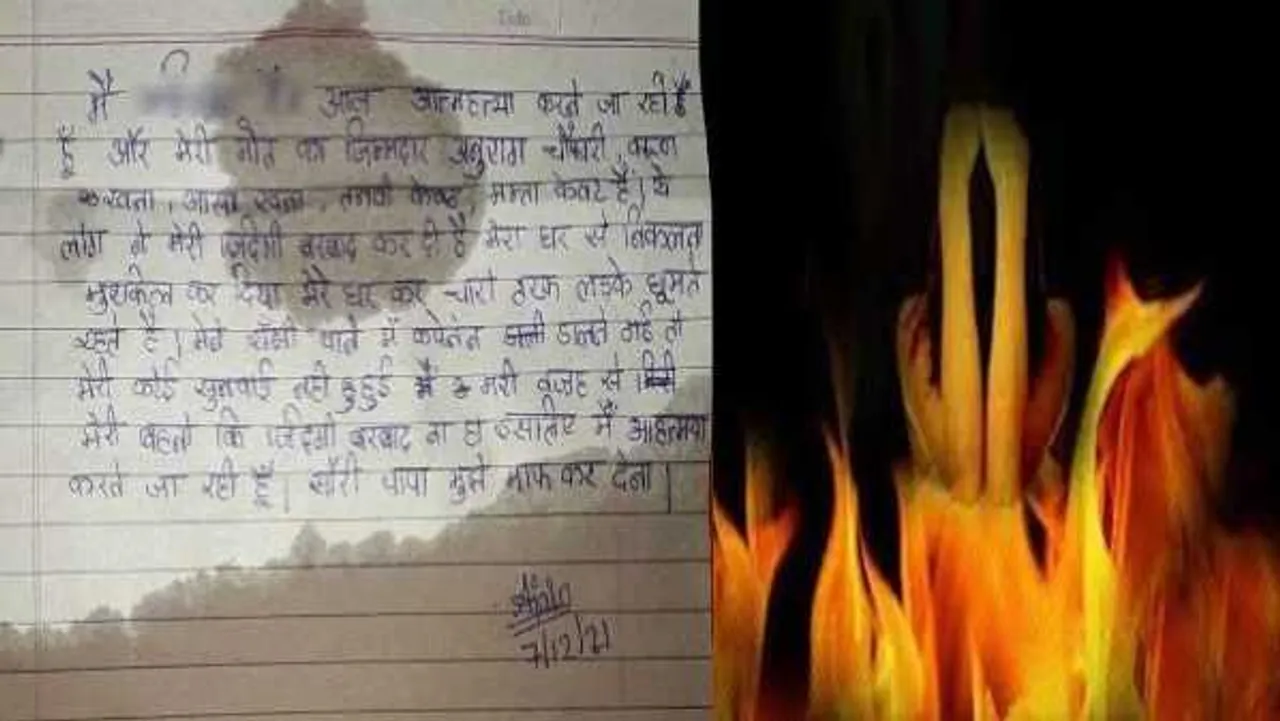 मै आज आत्महत्या करने जा रही है
हूँ और मेरी मौत का जिम्मदार अनुराग चौधरी
ममता केवट है। ये
लोग ने मेरी जिंदगी बरबाद कर दी है मेरा घर से निकलना
मुशकिल कर दिया मेरे घर कर चारो तरफ लडके घूमते
रहते है। मेने थाने में डालने गई तो
मेरी कोई सुनवाई नही हुई मेरी वजह से
मेरी बहनो कि जिंदगी बरबाद ना हो इसलिए मैं
करने जा रही हूँ। सॉरी पापा मुझे माफ कर देना।
7/12/21